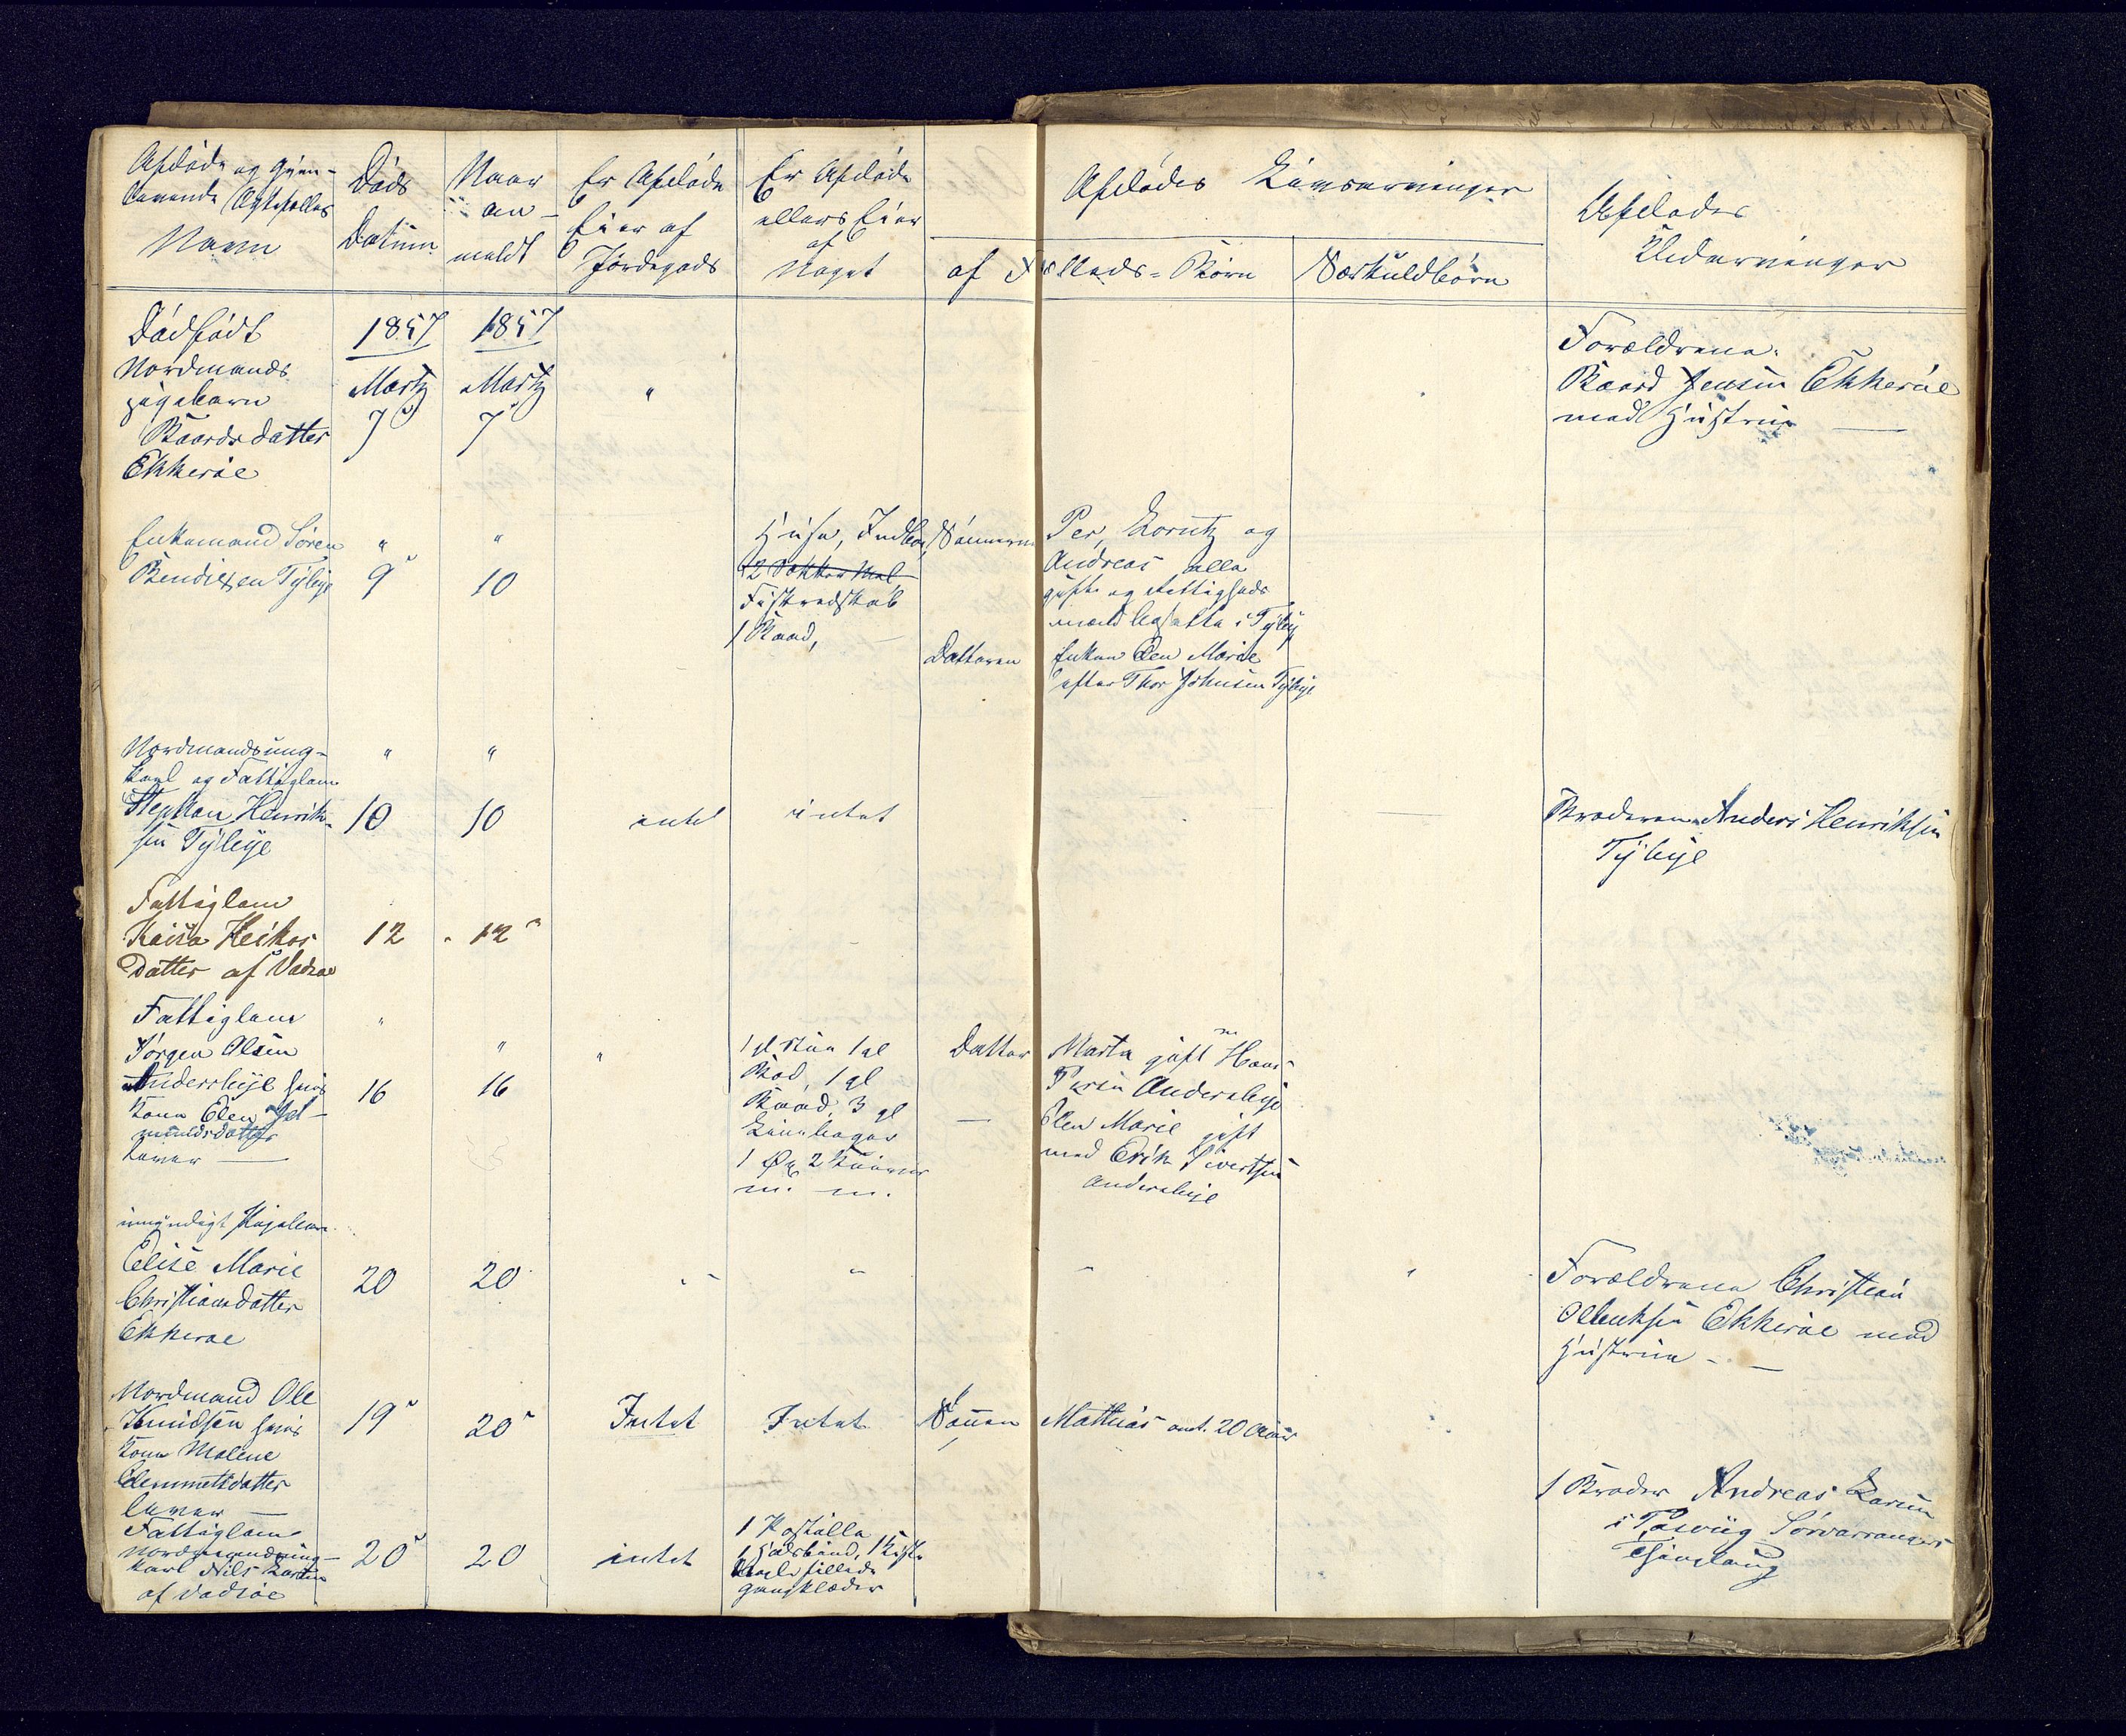 Afdøde og gjen-
levende Ægtefælles
Navn
Døds
Datum
Naar
an-
meldt
Er Afdøde
Eier af
Jordegods
Er Afdøde
ellers Eier
af
Noget
Afdødes Livsarvinger
af Fælleds-Børn
Særkuldbørn
Afdødes
Udarvinger
Dødfødt
Nordmands
pigebarn
Baardsdatter
Ekkerøe
1857
Martz
7
1857
Martz
7
"
Forældrene
Baard Jensen Ekkerøe
med Hustrue
Enkemand Søren
Bendixen Tÿbye
"
9
"
10
Huse, Indbo,
Fiskredskab
1 Baad,
Sønnerne
Per, Lorntz og
Andreas alle
gifte og Rettigheds
mænd bosatte i Tÿbÿ
Datteren
Enken Elen Marie
efter Thor Johnsen Tÿbye
Nordmandsung-
karl og Fattiglem
Stephan Henrik-
sen Tÿbye
"
10
"
10
intet
intet
Broderen Anders Henriksen
Tÿbye
Fattiglem
Kaisa Heikas
Datter af Vadsøe
12
12
Fattiglem
Jørgen Olsen
Andersbye hvis
Kone Elen
lever
"
16
"
16
"
1 gl Stue 1 gl
Bod, 1 gl
Baad, 3 gl
1 Ox 2
m. m.
Datter
Marta gift m Hans
Andersbye
Elen Marie gift
med Erik Sivertsen
Andersbye
umyndigt Pigebarn
Elise Marie
Christiansdatter
Ekkerøe
20
20
Forældrene Christian
Ekkerøe med
Hustrue
Nordmand Ole
Knudsen hvis
Kone Malene
Clemmetsdatter
lever
19
20
Intet
Intet
Sønnen
Mathias omt. 20 Aar
Fattiglem
Nordmandsung-
karl Nils Larsen
af Vadsøe
20
20
intet
1 Kiste
gangklæder
1 Broder Andreas Larsen
i Pasviig Sørvaranger
Thinglaug